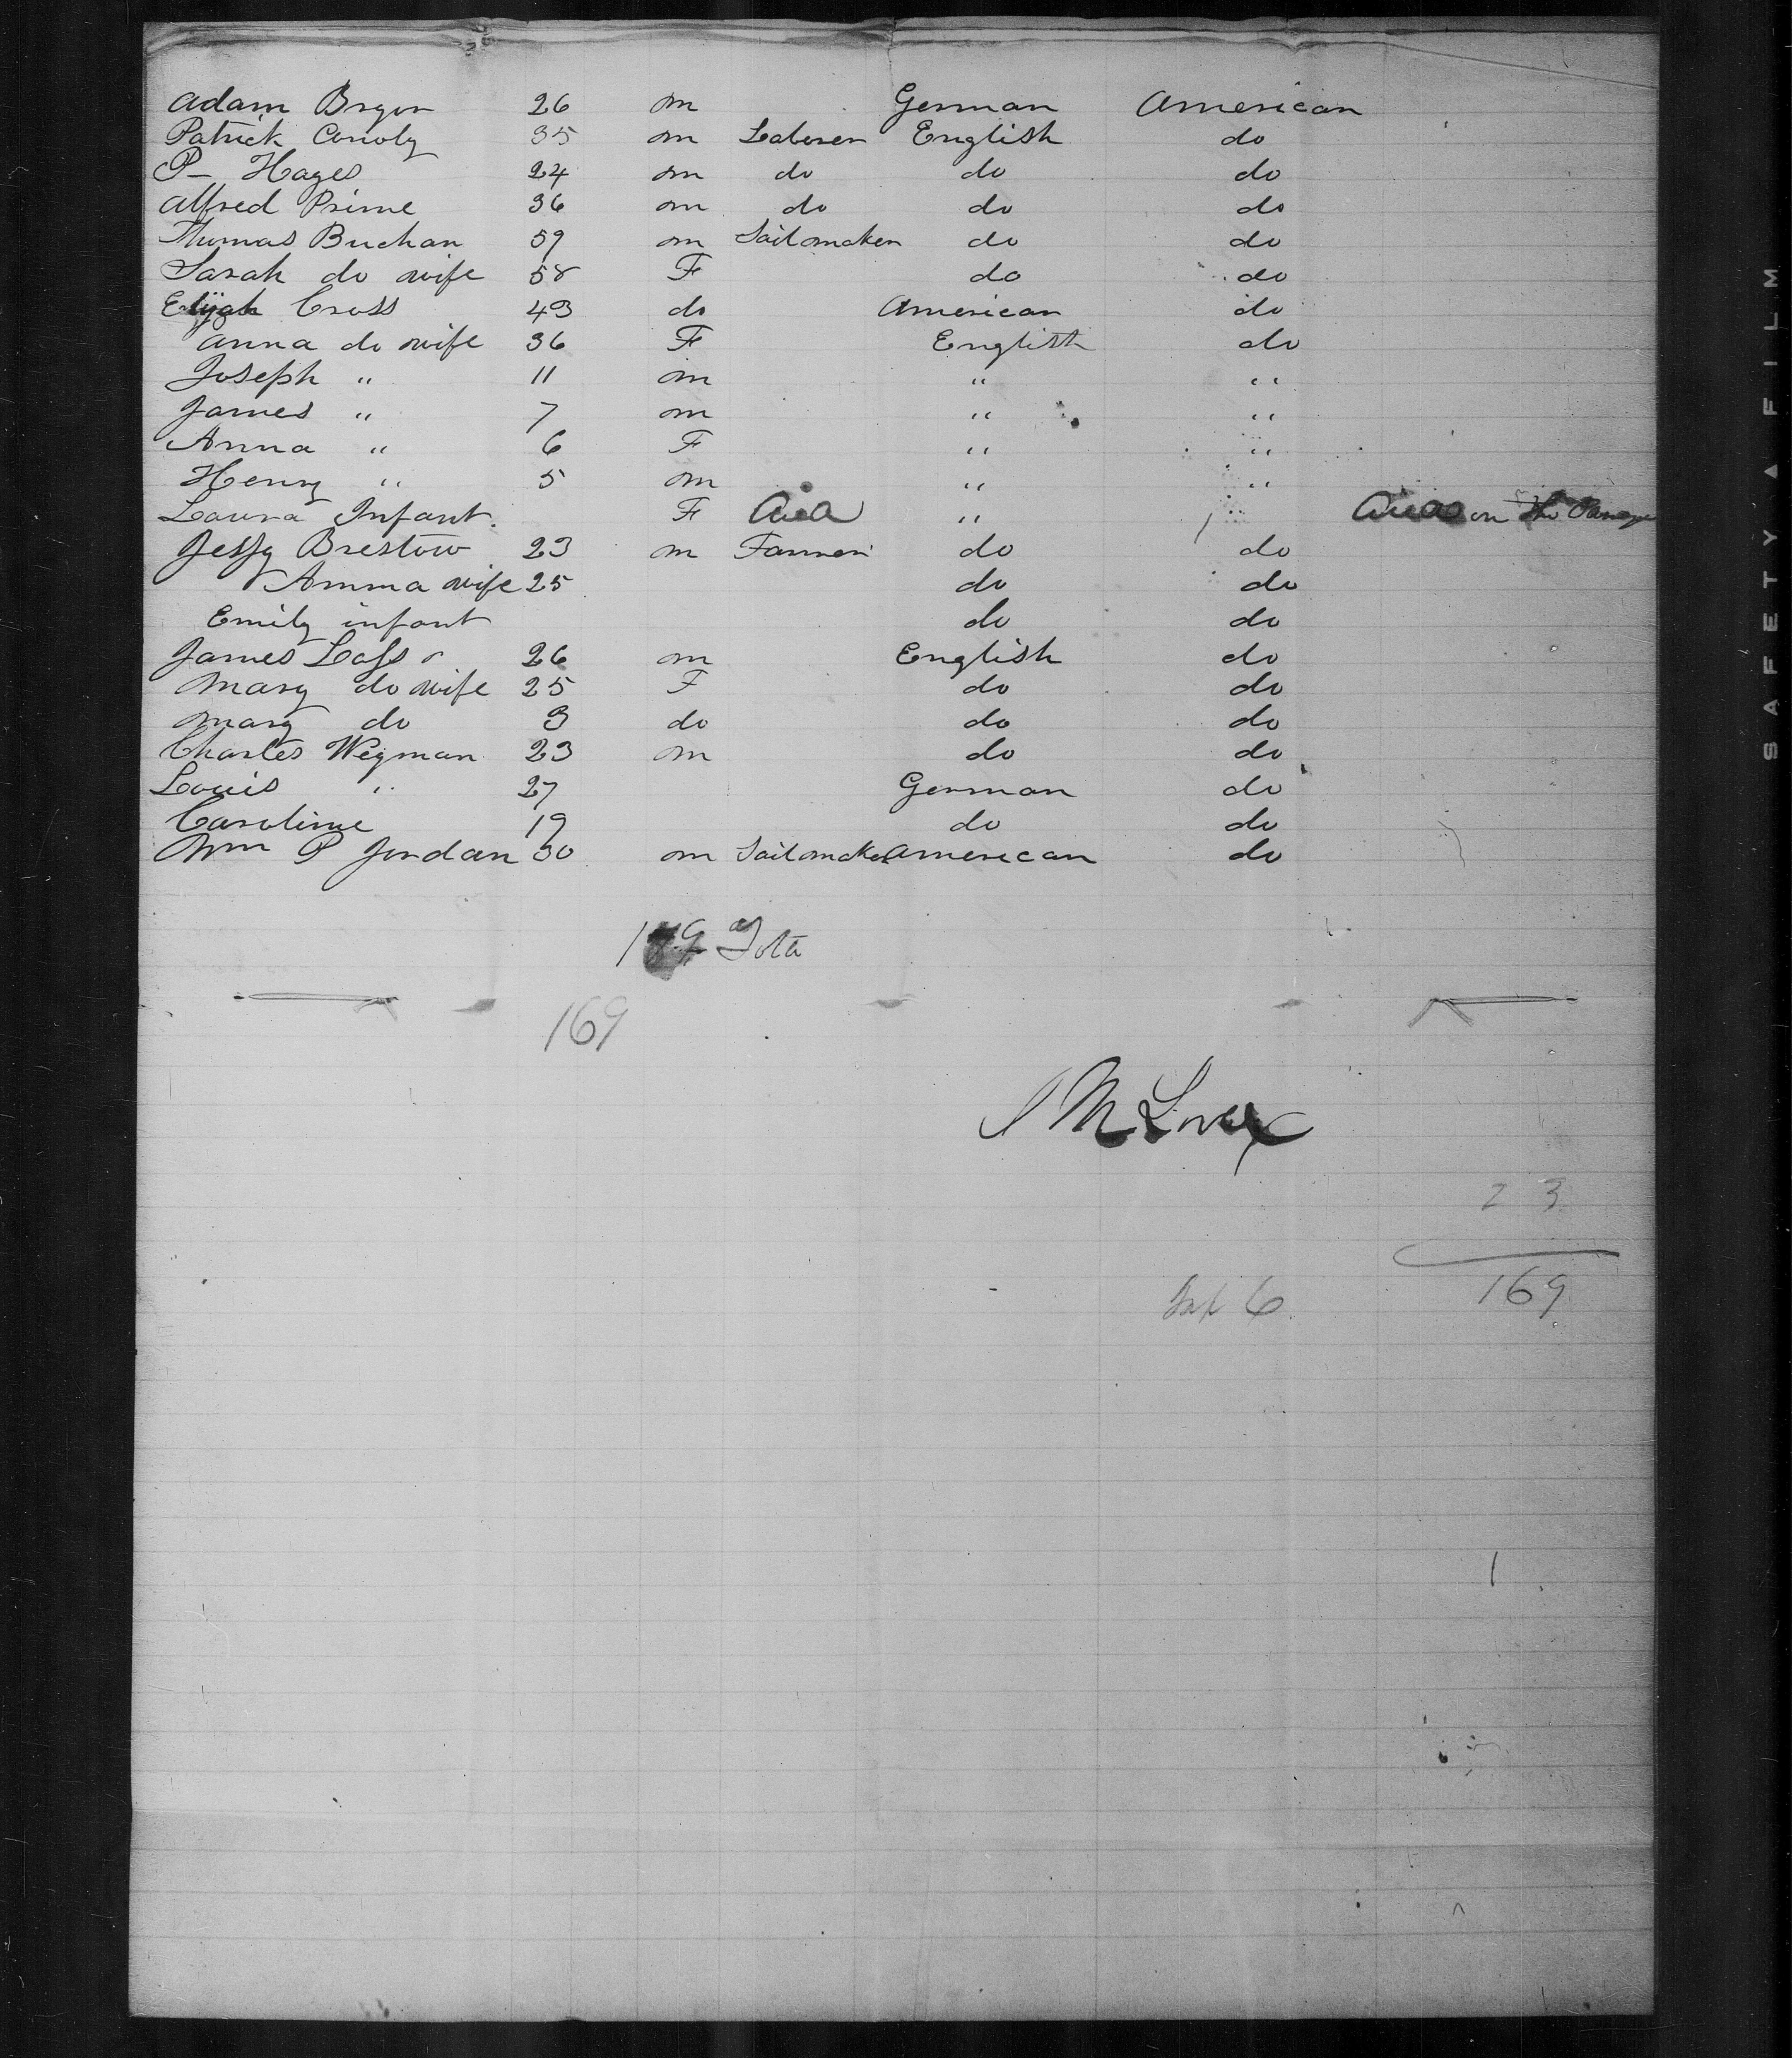 Adam Bryon 26 m German American
Patrick Conoly 35 m Laborer English do
P- Hayes 24 m do do do
Alfred Prime 36 m do do do
Thomas Buchan 59 m Sailomaker do do
Sarah do wife 58 F do do
Elijah Cross 43 do American do
Anna do wife 36 F English do
Joseph " 11 m " "
James " 7 m " "
Anna " 6 F " "
Henry " 5 m " "
Laura Infant. F "  on the Passage
Jessy Brestow 23 m Farmer do do
Amma wife 25 do do
Emily infant do do
James Lass 26 m English do
Mary do wife 25 F do do
Mary do 3 do do do
Charles Wegman 23 m do do
Louis " 27 German do
Caroline 19 do do
Wm P Jordan 30 m Sailomaker American do
Tota
169
23
Inf 6 169
SAFETY A FILM